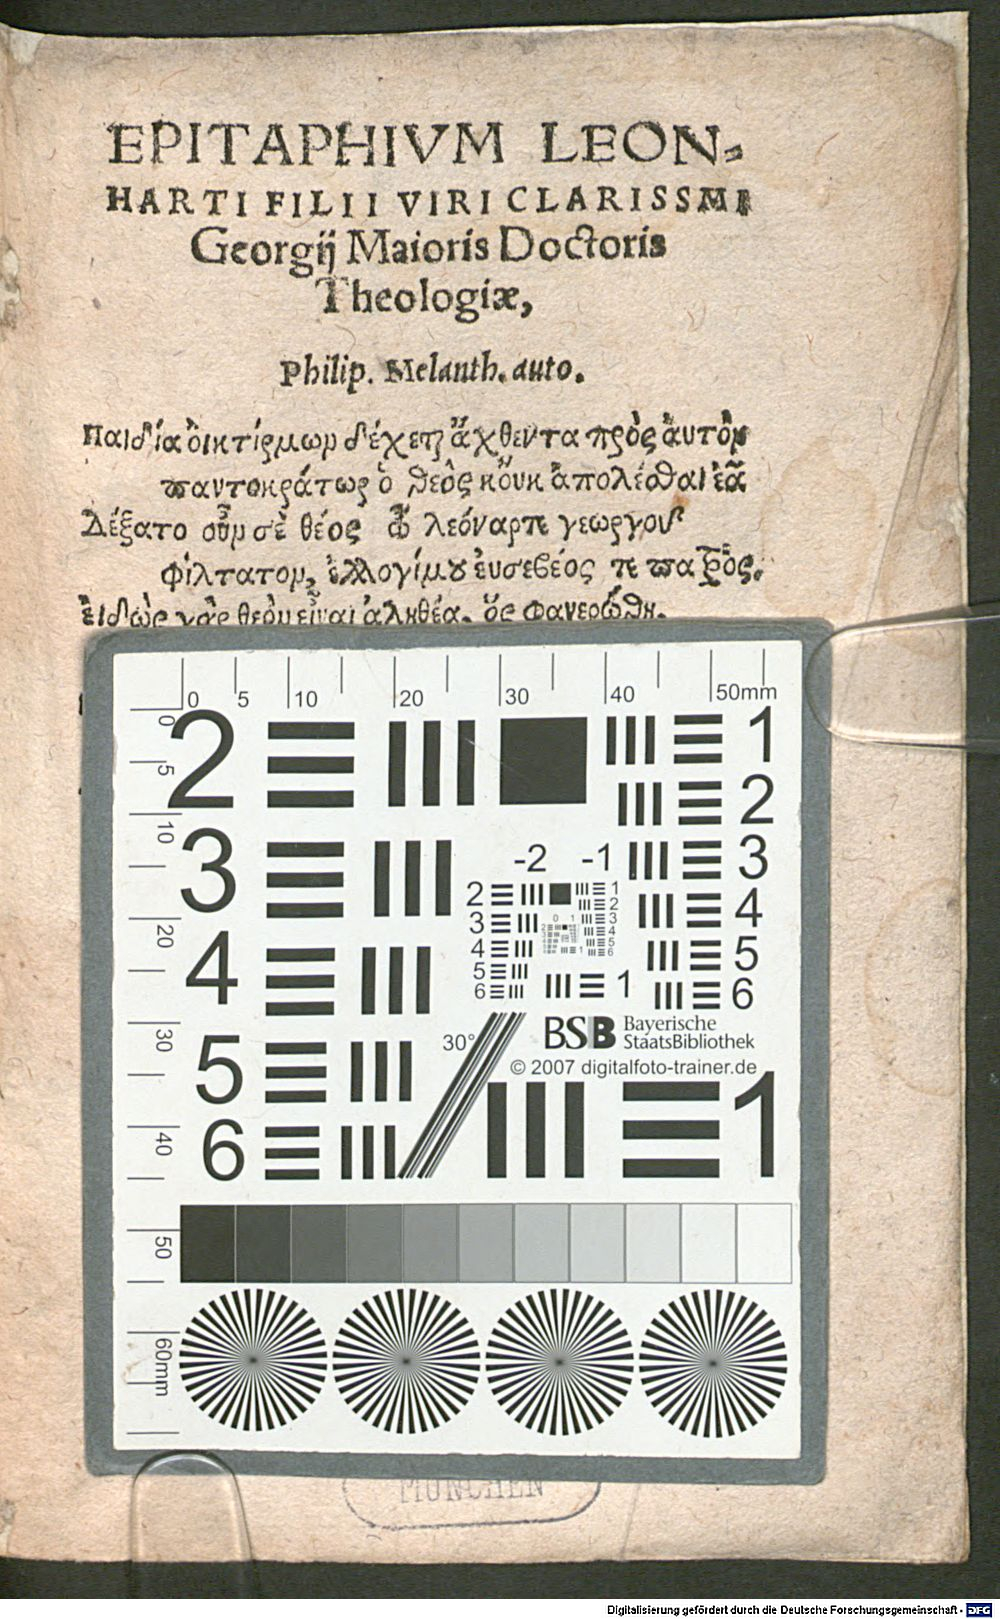 EPITAPHIVM LEON-
HARTI FILII VIRI CLARISSMI
Georgij Maioris Doctoris
Theologiæ,
Philip. Melanth. auto.
Παιδία ὀικτίρμων δέχετ ἄχθεντα πρὸς ἀυτὸν
παντοκράτωρ ὁ θεὸς κὄυκ ἀπολέσθαι ἐᾶ
Δέξατο οὖν σὲ θέος ὦ λεόναρτε γεωργοῦ
φίλτατον, ἐλλογίμου ἐυσεβέος τε πατρὸς.
ἐιδὼς γὰρ θεὸν εἶναι ἀληθέα, ὅς φανερώθη.
0 5 10 20 30 40 50mm
0 5 10 20 30 40 50 60mm
2 1
2
3 -2 -1 3
2 1
2
3 0 1 3
4 4
4 4
5 5
5 5
6 6
6 1 6
BSB Bayerische
StaatsBibliothek
30°
© 2007 digitalfoto-trainer.de
5
1
6
MÜNCHEN
Digitalisierung gefördert durch die Deutsche Forschungsgemeinschaft - DFG